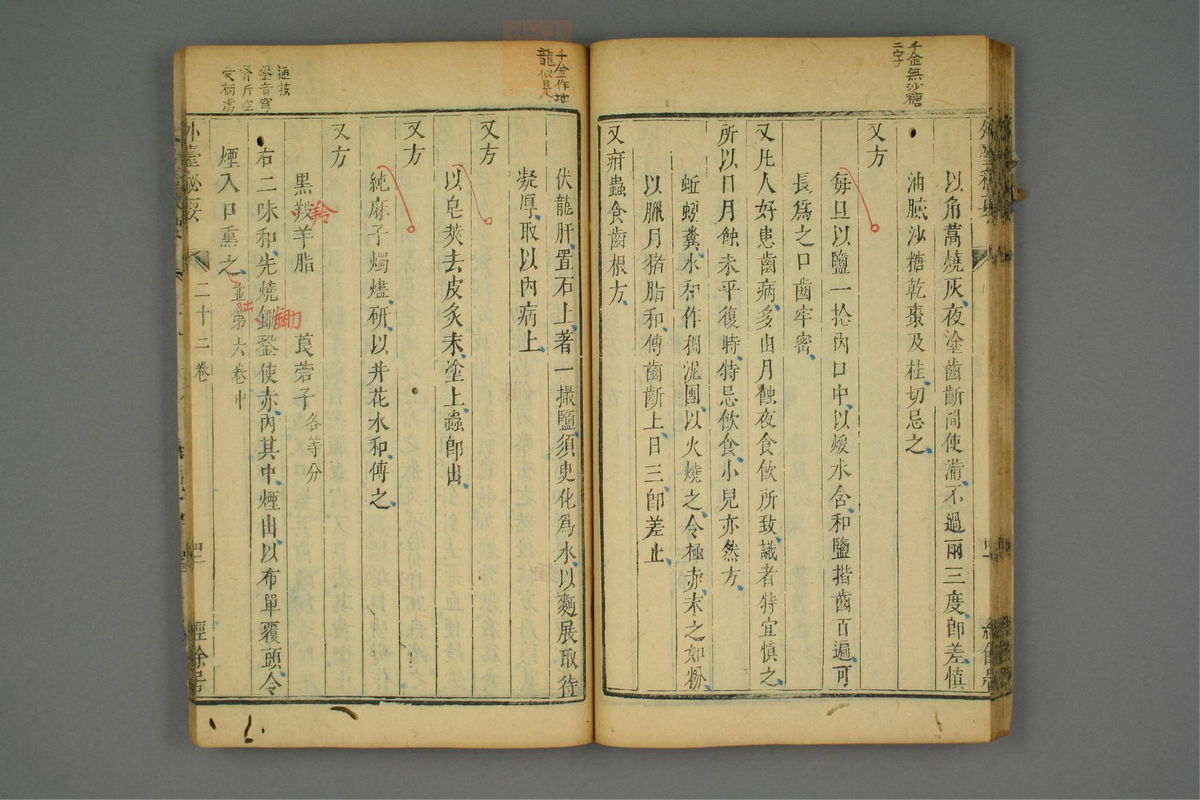 千金無沙糖
二字
以角蒿燒灰夜塗齒齗間使滿不過兩三度卽差愼
油膩沙糖乾棗及桂切忌之
又方
每旦以鹽一捻內口中以煖水含和鹽揩齒百遍可
長爲之口齒牢密
又凡人好患齒病多由月蝕夜食飮所致識者特宜愼之
所以日月蝕未平復時特忌飮食小兒亦然方
蚯蚓糞水和作稠泥團以火燒之令極赤末之如粉
以臘月猪脂和傅齒齗上日三卽差止
又疳蟲食齒根方
千金作地
龍似是
伏龍肝置石上著一撮鹽須臾化爲水以麪展取待
凝厚取以內病上
又方
以皂莢去皮炙末塗上蟲卽出
又方
純麻子燭燼研以井花水和傅之
又方
黑羖羊脂 莨菪子各等分
羚
右二味和先燒鋤銎使赤內其中煙出以布單覆頭令
鋤
煙入口熏之並第六卷中
出
外臺秘要
二十二卷
經餘居